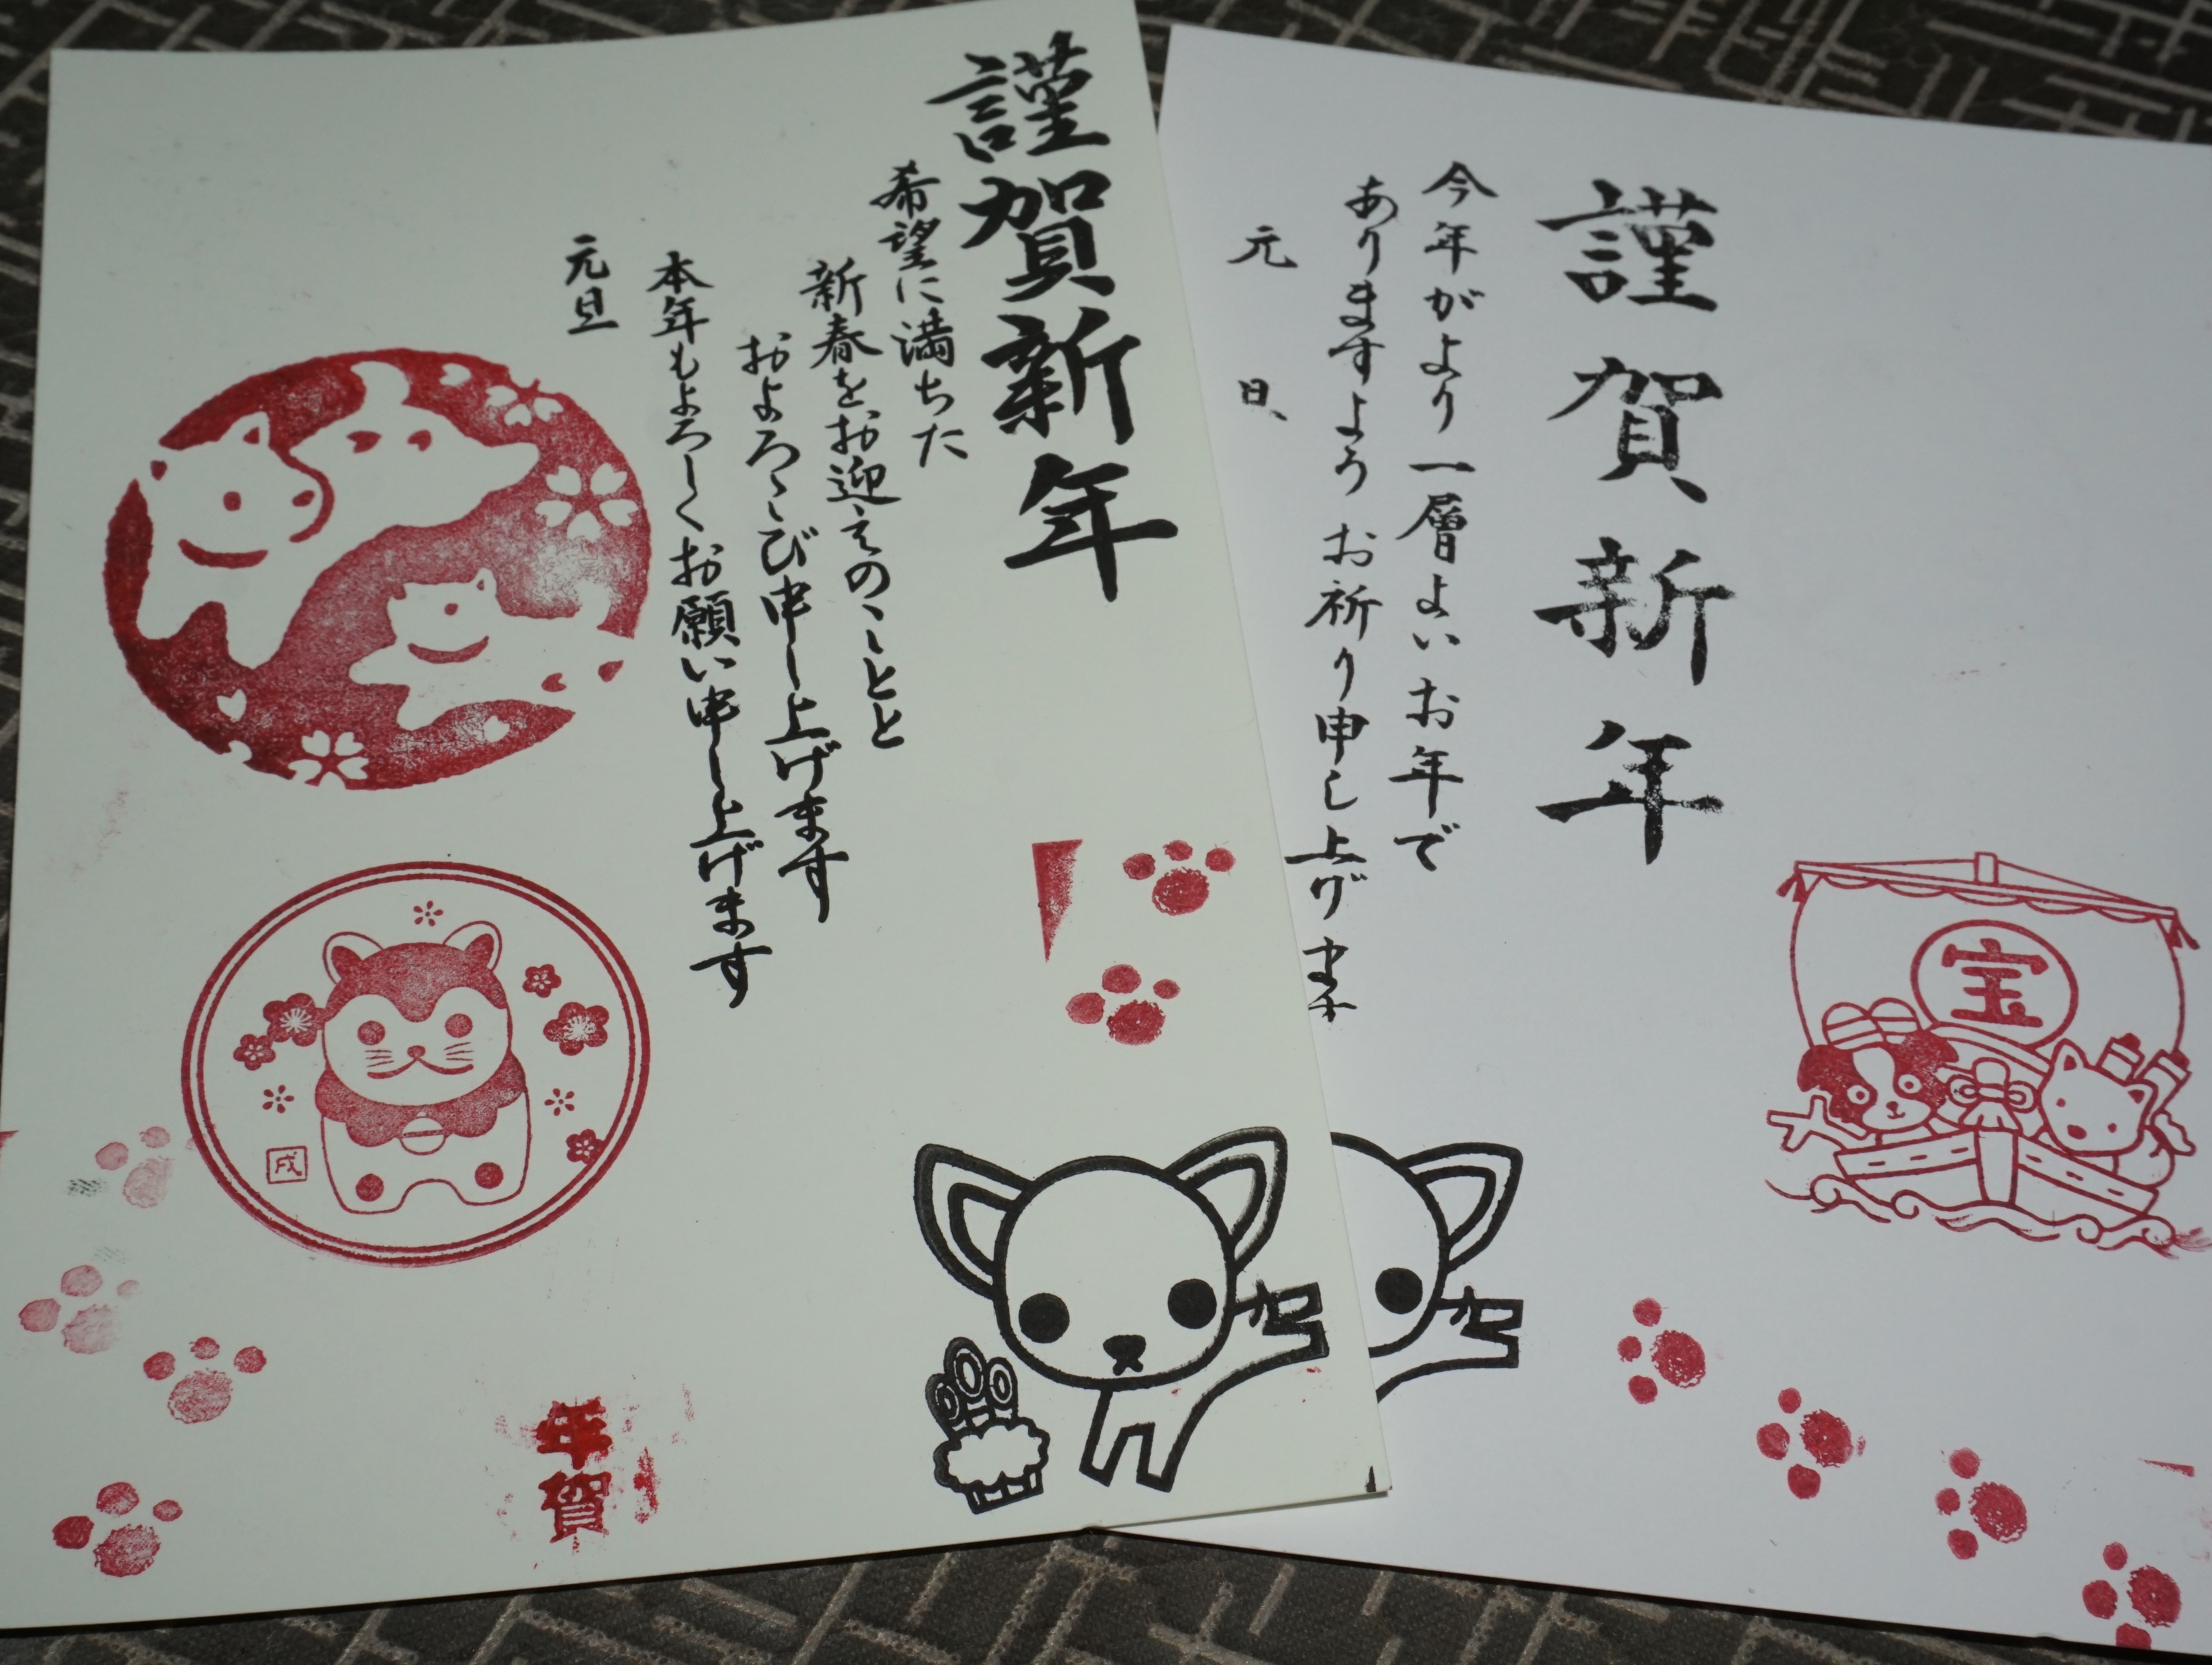 謹賀新年
希望に満ちた
新春をお迎えのことと
およろこび申し上げます
本年もよろしくお願い申し上げます
元旦
戌
年賀
賀
謹賀新年
今年がより一層よいお年で
ありますようお祈り申し上げます
元日、
宝
賀